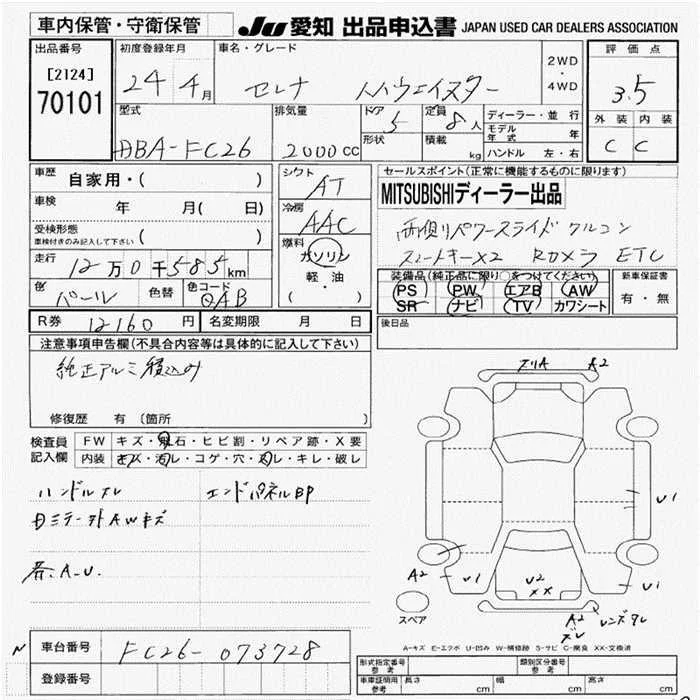 車内保管・守衛保管
JU 愛知 出品申込書 JAPAN USED CAR DEALERS ASSOCIATION
出品番号
[2124]
70101
初度登録年月
24 4月
車名・グレード
セレナ ハイウェイスター
2WD
・
4WD
評価点
3.5
外装 内装
C C
型式
DBA-FC26
排気量
2000cc
ドア
5
形状
定員
8人
積載
kg
ディーラー・並行
モデル年式 年
ハンドル 左・右
車歴
自家用・( )
車検
年 月( 日)
受検形態
車検付きのみ記入して下さい ( )
走行
12万0千585km
色
パール
色替
色コード
QAB
シフト
AT
冷房
AAC
燃料
ガソリン
軽・油
( )
セールスポイント(正常に機能するものに限ります)
MITSUBISHIディーラー出品
両側パワースライド クルコン
スマートキーX2 Rカメラ ETC
装備品(純正品に限り○をつけてください)
PS PW エアB AW
SR ナビ TV カワシート
新車保証書
有・無
R券 12160円
名変期限 月 日
後日品
注意事項申告欄(不具合内容等は具体的に記入して下さい)
純正アルミ積込み
修復歴 有 〔箇所 〕
検査員記入欄
FW キズ・飛石・ヒビ割・リペア跡・X要
内装 キズ・汚レ・コゲ・穴・スレ・キレ・破レ
ハンドルスレ エンドパネル凹
AWキズ
各A.U.
スリA A2
U1
A2 U1
U2
XX
U1
A2
レンズスレ
スペア
A-キズ E-エクボ U-凹み W-補修跡 S-サビ C-腐食 XX-交換済
N
車台番号
FC26-073728
登録番号
形式指定番号
参考
類別区分番号
参考
車車証明用
参考
長さ cm 幅 cm 高さ cm